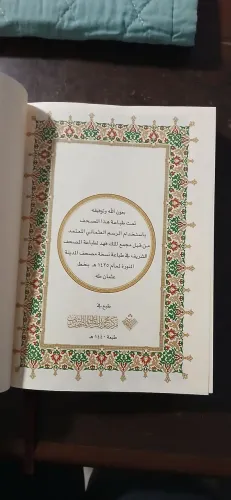 بعون الله وتوفيقه
تمت طباعة هذا المصحف
باستخدام الرسم العثماني المعتمد
من قبل مجمع الملك فهد لطباعة المصحف
الشريف في طباعة نسخة مصحف المدينة
النبوية لعام ١٤٢٥ هـ بخط
عثمان طه
طبع في
طبعة ١٤٤٠ هـ